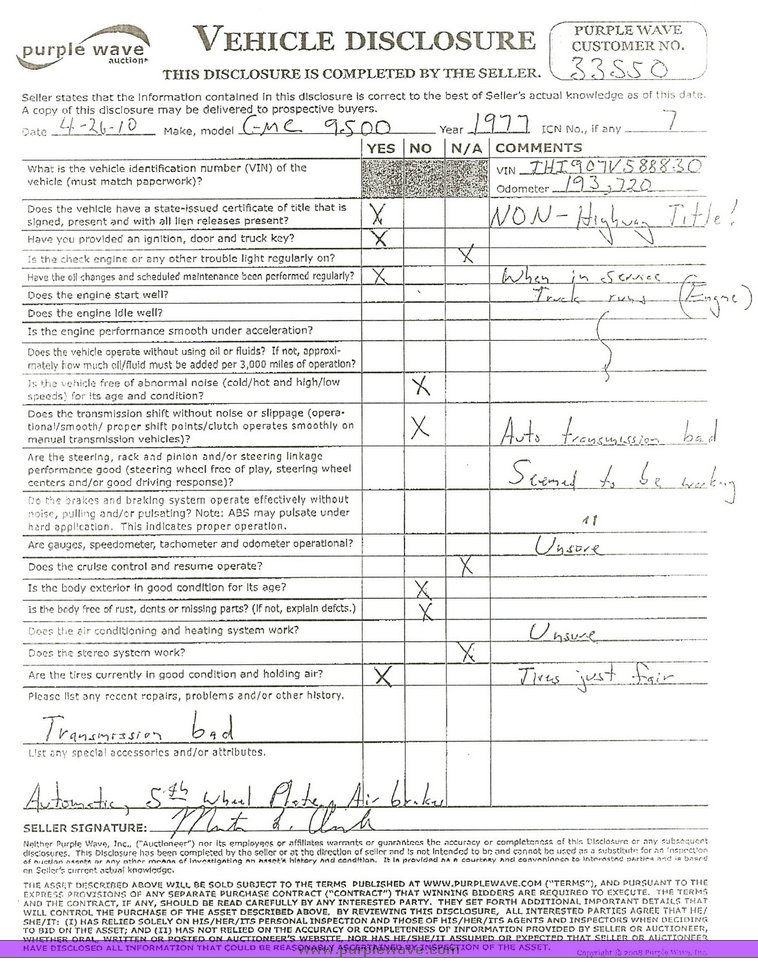 purple wave
auction®
VEHICLE DISCLOSURE
THIS DISCLOSURE IS COMPLETED BY THE SELLER.
PURPLE WAVE
CUSTOMER NO.
33550
Seller states that the information contained in this disclosure is correct to the best of Seller's actual knowledge as of this date.
A copy of this disclosure may be delivered to prospective buyers.
Date 4-26-10 Make, model GMC 9500 Year 1977 ICN No., if any 7
YES NO N/A COMMENTS
What is the vehicle identification number (VIN) of the
vehicle (must match paperwork)?
VIN THI907V588830
Odometer 193,720
Does the vehicle have a state-issued certificate of title that is
signed, present and with all lien releases present? X NON-Highway Title!
Have you provided an ignition, door and truck key? X
Is the check engine or any other trouble light regularly on? X
Have the oil changes and scheduled maintenance been performed regularly? X When in service
Does the engine start well? Truck runs (Engine)
Does the engine idle well?
Is the engine performance smooth under acceleration?
Does the vehicle operate without using oil or fluids? If not, approxi-
mately how much oil/fluid must be added per 3,000 miles of operation?
Is the vehicle free of abnormal noise (cold/hot and high/low
speeds) for its age and condition? X
Does the transmission shift without noise or slippage (opera-
tional/smooth/ proper shift points/clutch operates smoothly on
manual transmission vehicles)? X Auto transmission bad
Are the steering, rack and pinion and/or steering linkage
performance good (steering wheel free of play, steering wheel
centers and/or good driving response)? Seemed to be working
Do the brakes and braking system operate effectively without
noise, pulling and/or pulsating? Note: ABS may pulsate under
hard application. This indicates proper operation. "
Are gauges, speedometer, tachometer and odometer operational? Unsure
Does the cruise control and resume operate? X
Is the body exterior in good condition for its age? X
Is the body free of rust, dents or missing parts? (if not, explain defcts.) X
Does the air conditioning and heating system work? Unsure
Does the stereo system work? X
Are the tires currently in good condition and holding air? X Tires just fair
Please list any recent repairs, problems and/or other history.
Transmission bad
List any special accessories and/or attributes.
Automatic, 5th Wheel Plate, Air brakes
SELLER SIGNATURE:
Neither Purple Wave, Inc., ("Auctioneer") nor its employees or affiliates warrants or guarantees the accuracy or completeness of this Disclosure or any subsequent
disclosures. This Disclosure has been completed by the seller or at the direction of seller and is not intended to be and cannot be used as a substitute for an inspection
of auction assets or any other means of investigating an asset's history and condition. It is provided as a courtesy and convenience to interested parties and is based
on Seller's current actual knowledge.
THE ASSET DESCRIBED ABOVE WILL BE SOLD SUBJECT TO THE TERMS PUBLISHED AT WWW.PURPLEWAVE.COM ("TERMS"), AND PURSUANT TO THE
EXPRESS PROVISIONS OF ANY SEPARATE PURCHASE CONTRACT ("CONTRACT") THAT WINNING BIDDERS ARE REQUIRED TO EXECUTE. THE TERMS
AND THE CONTRACT, IF ANY, SHOULD BE READ CAREFULLY BY ANY INTERESTED PARTY. THEY SET FORTH ADDITIONAL IMPORTANT DETAILS THAT
WILL CONTROL THE PURCHASE OF THE ASSET DESCRIBED ABOVE. BY REVIEWING THIS DISCLOSURE, ALL INTERESTED PARTIES AGREE THAT HE/
SHE/IT: (I) HAS RELIED SOLELY ON HIS/HER/ITS PERSONAL INSPECTION AND THOSE OF HIS/HER/ITS AGENTS AND INSPECTORS WHEN DECIDING
TO BID ON THE ASSET; AND (II) HAS NOT RELIED ON THE ACCURACY OR COMPLETENESS OF INFORMATION PROVIDED BY SELLER OR AUCTIONEER,
WHETHER ORAL, WRITTEN OR POSTED ON AUCTIONEER'S WEBSITE, NOR HAS HE/SHE/IT ASSUMED OR EXPECTED THAT SELLER OR AUCTIONEER
HAVE DISCLOSED ALL INFORMATION THAT COULD BE REASONABLY ASCERTAINED BY INSPECTION OF THE ASSET.
www.purplewave.com
Copyright © 2008 Purple Wave, Inc.